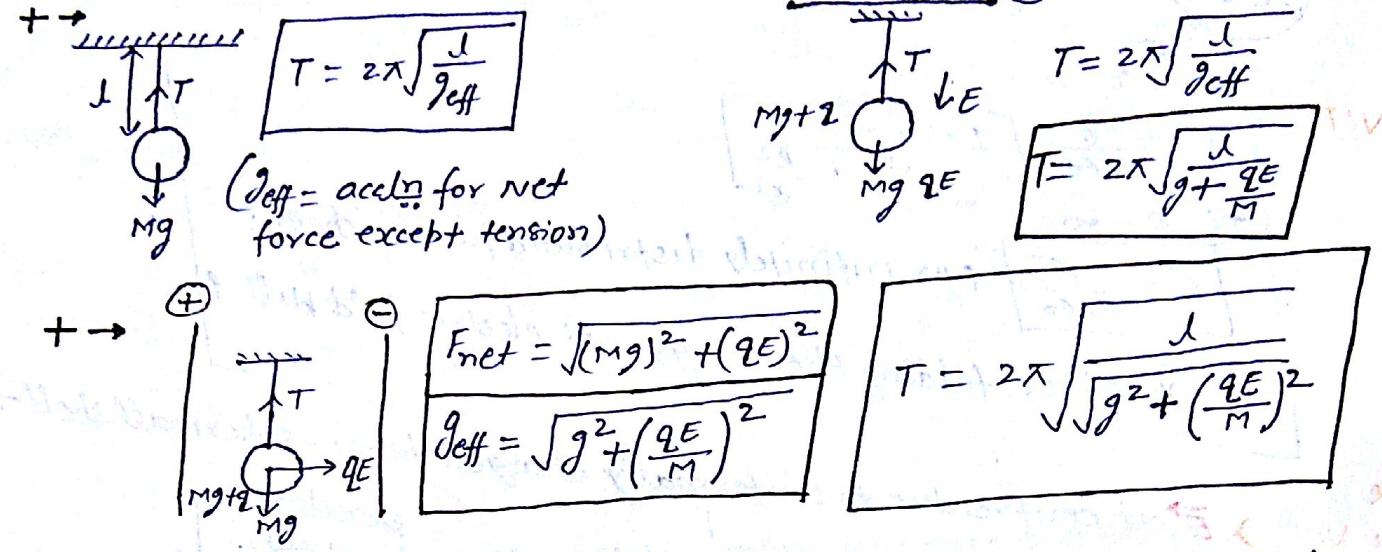 +→
l
T
Mg
T = 2π√(l/g_eff)
(g_eff = acceln for Net
force except tension)
T
↓E
M, +q
Mg qE
T = 2π√(l/g_eff)
T = 2π√(l/(g + qE/M))
+→
+
-
T
qE
M, +q
Mg
F_net = √((Mg)² + (qE)²)
g_eff = √(g² + (qE/M)²)
T = 2π√(l/√(g² + (qE/M)²))